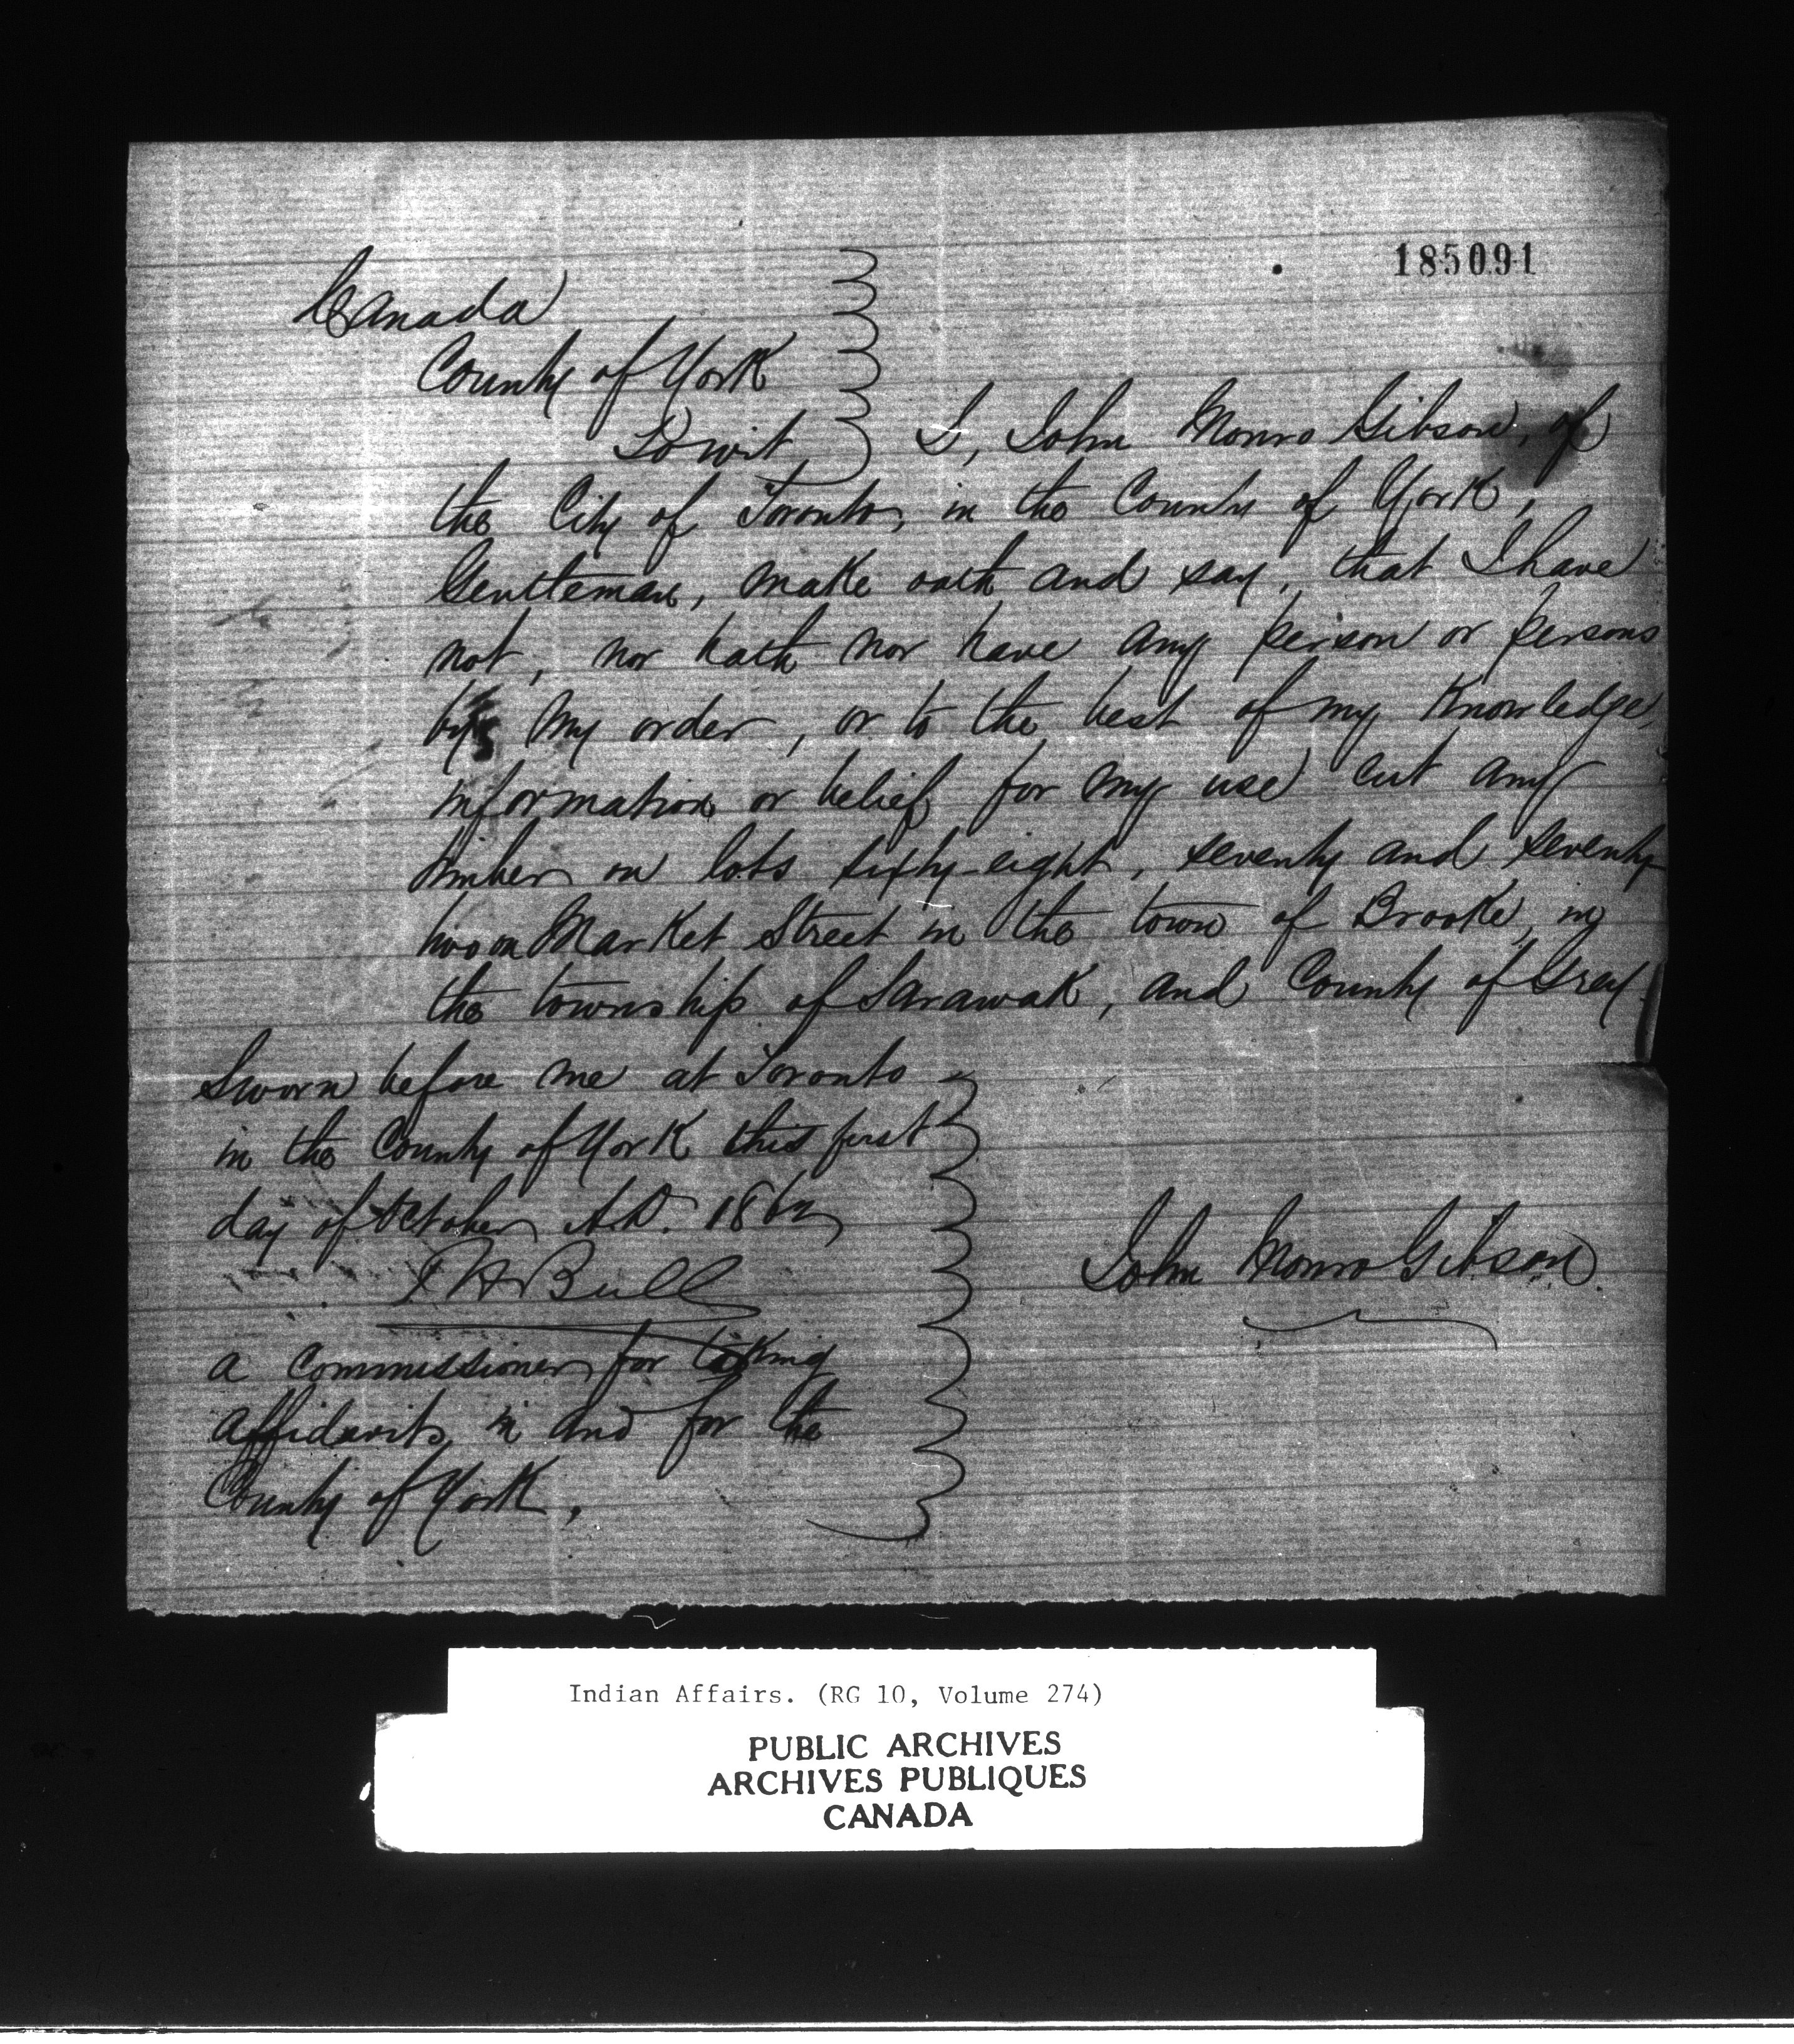 185091
Canada
County of York
To wit } I, John Monro Gibson, of
the City of Toronto, in the County of York,
Gentleman, make oath and say, that I have
not, nor hath nor have any person or persons
by my order, or to the best of my Knowledge,
information or belief, for my use cut any
timber on lots sixty-eight, seventy and seventy
two on Market Street in the town of Brooke, in
the township of Sarawak, and County of Grey.
Sworn before me at Toronto
in the County of York this first
day of October A.D. 1862
Bull
John Monro Gibson.
a Commissioner for taking
affidavits in and for the
County of York.
Indian Affairs. (RG 10, Volume 274)
PUBLIC ARCHIVES
ARCHIVES PUBLIQUES
CANADA